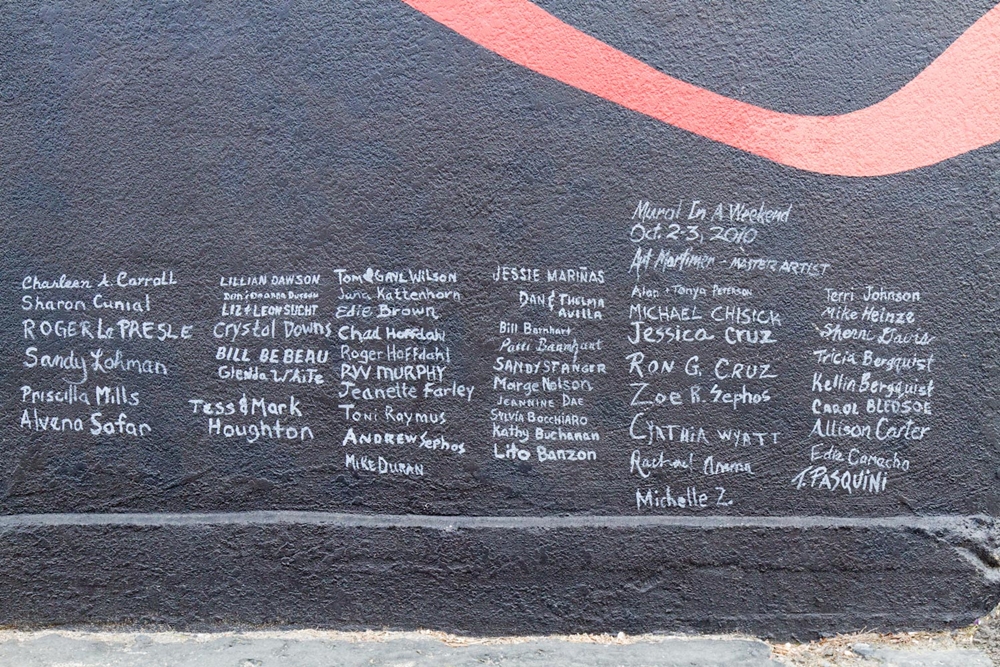 Charleen A. Carroll
Sharon Cunial
ROGER LePRESLE
Sandy Lohman
Priscilla Mills
Alvena Safar
LILLIAN DAWSON
LIZ & LEON SUCHT
Crystal Downs
BILL BE BEAU
Glenda Waite
Tess & Mark
Houghton
Tom & GAYL WILSON
Jana Kattenhorn
Edie Brown
Chad Hoffdahl
Roger Hoffdahl
RW MURPHY
Jeanette Farley
Toni Raymus
ANDREW Sephos
MIKE DURAN
JESSIE MARIÑAS
DAN & THELMA
AVILLA
Bill Barnhart
Patti Barnhart
SANDY STANGER
Marge Nelson
JEANNINE DAE
Sylvia Bocchiaro
Kathy Buchanan
Lito Banzon
Mural In A Weekend
Oct. 2-3, 2010
Art Mortimer - MASTER ARTIST
Alan & Tonya Peterson
MICHAEL CHISICK
Jessica Cruz
RON G. CRUZ
Zoe R. Sephos
CYNTHIA WYATT
Rachael
Michelle Z.
Terri Johnson
Mike Heinze
Sherri Davis
Tricia Bergquist
Kellin Bergquist
CAROL BLEDSOE
Allison Carter
Edie Camacho
T. PASQUINI